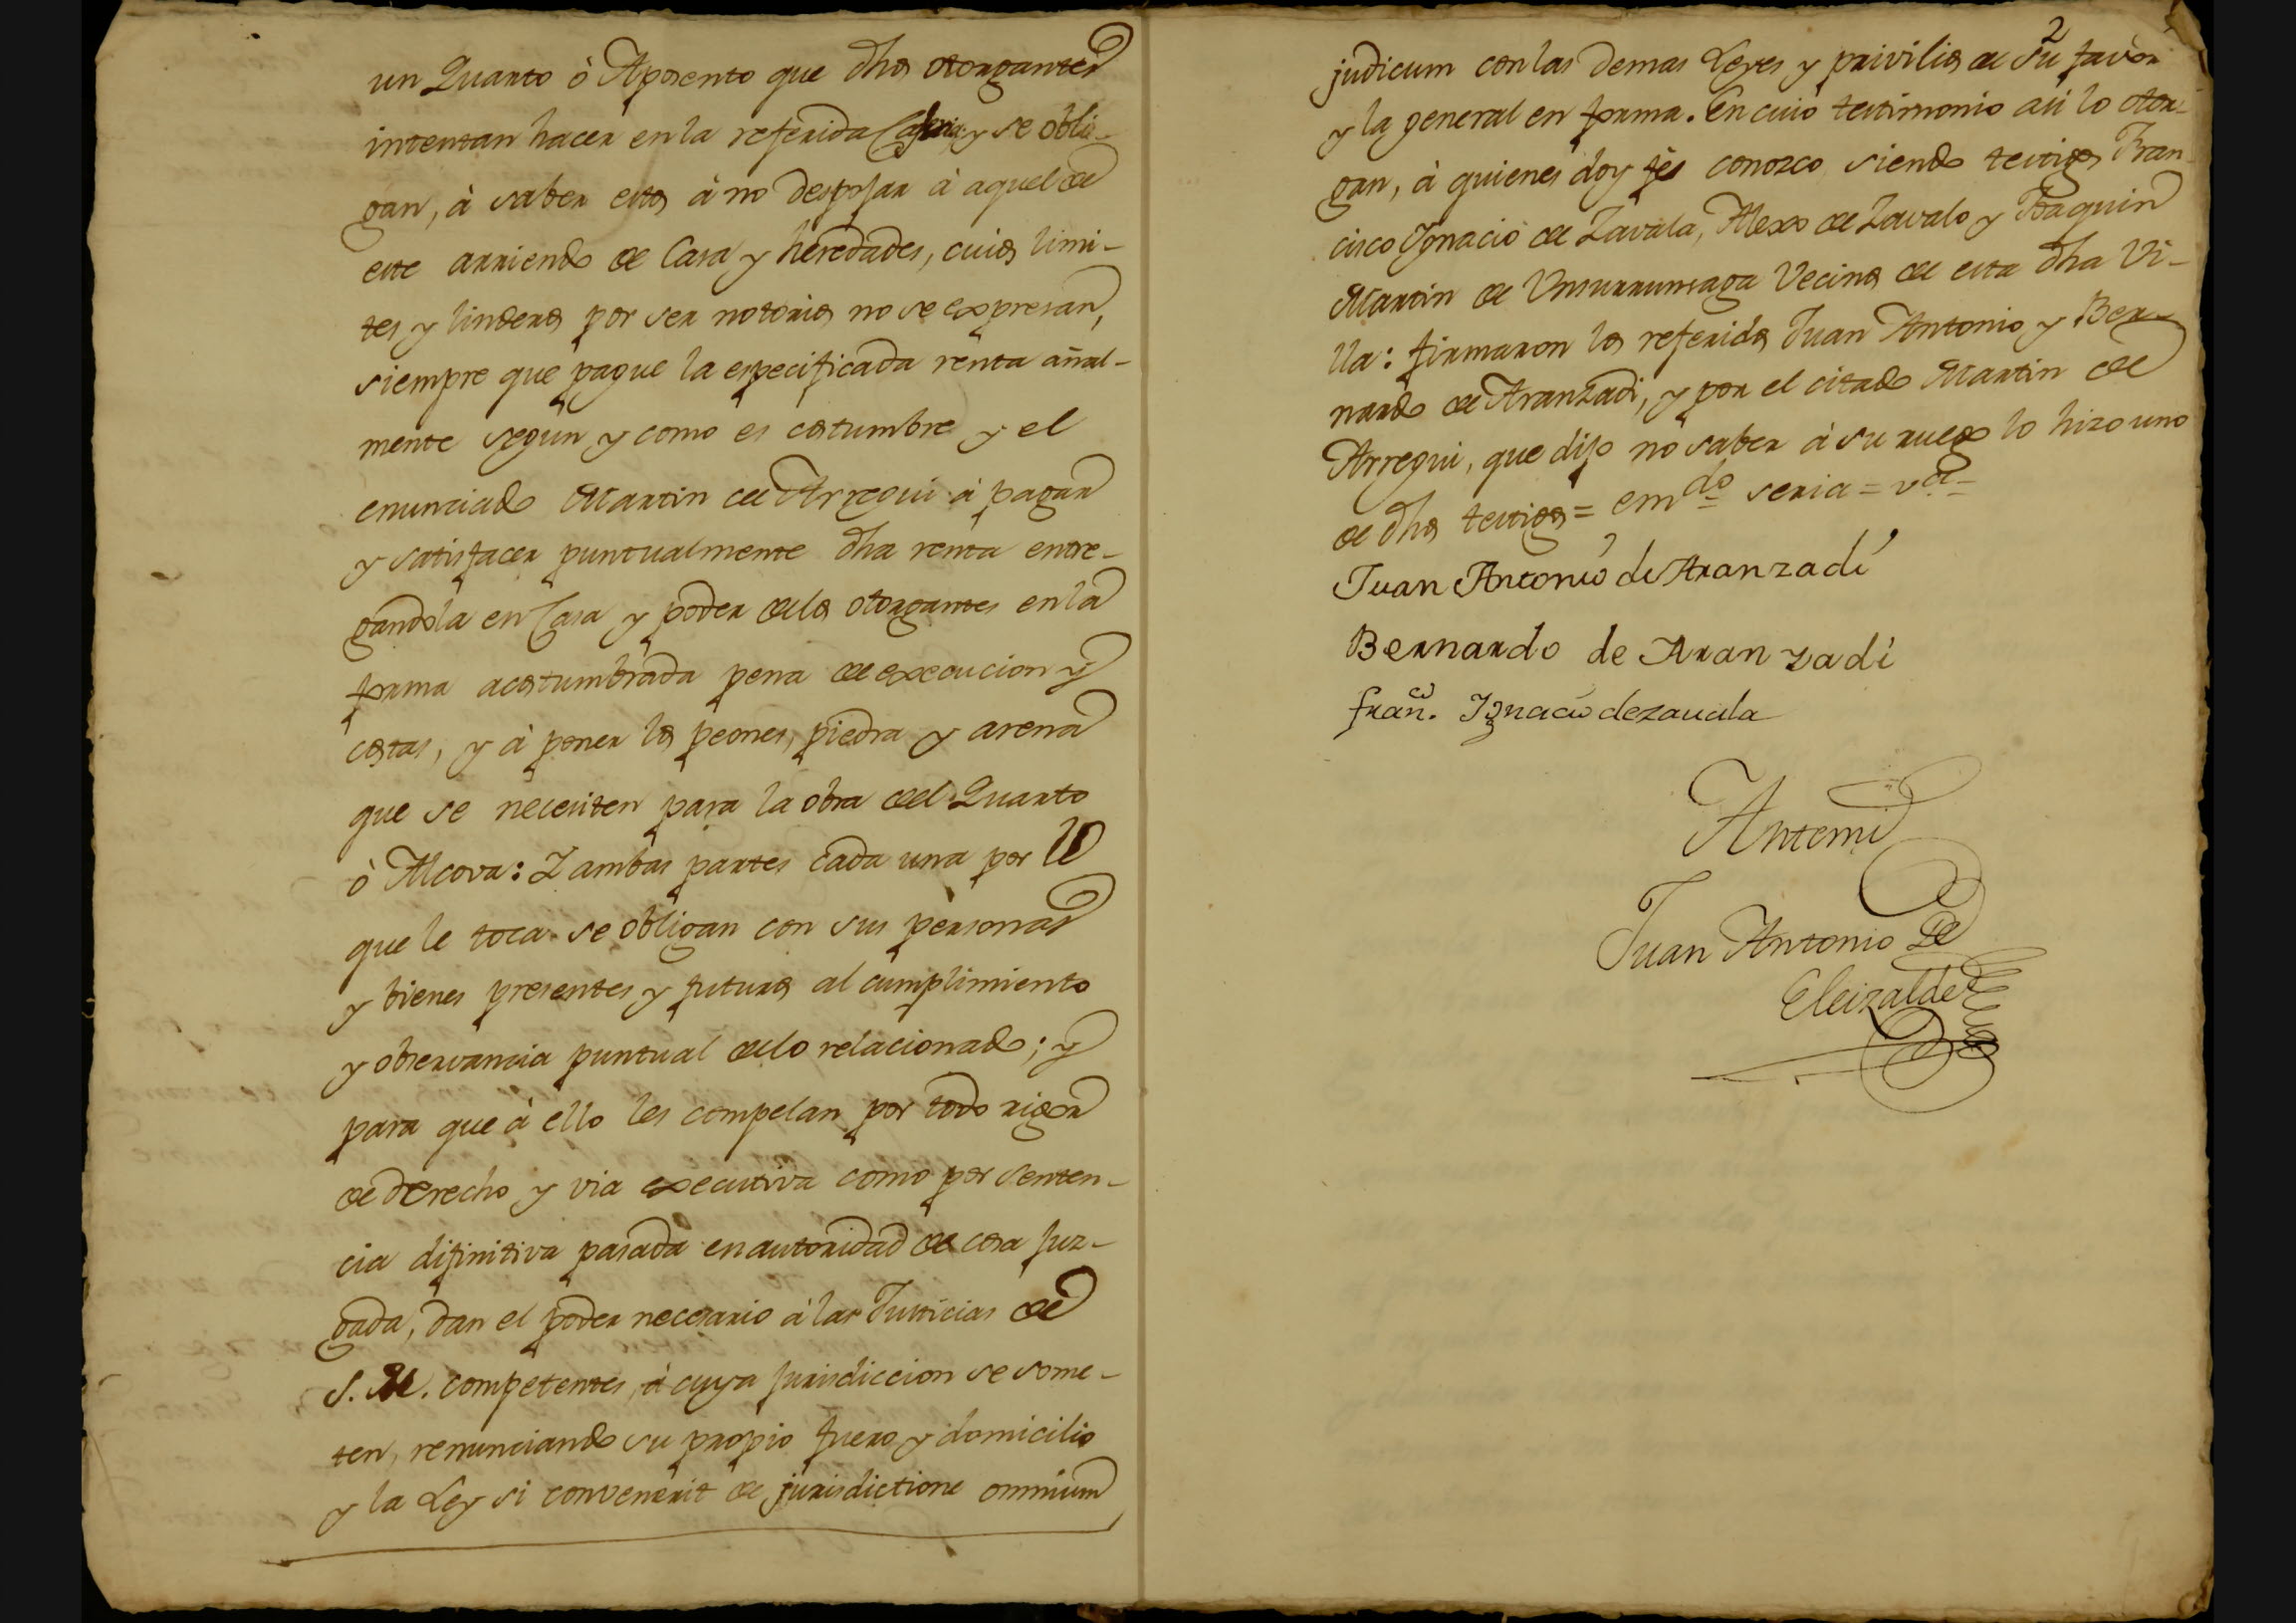 un Quarto ò Aposento que dhos otorgantes
intentan hacer en la referida Caseria y se obli-
gan, à saber estos à no despojar à aquel de
este arriendo de Casa y heredades, cuios limi-
tes y linderos por ser notorios no se expresan,
siempre que pague la especificada renta añal-
mente segun y como es costumbre y el
enunciado Martin de Arregui à pagar
y satisfacer puntualmente dha renta entre-
gandola en Casa y poder delos otorgantes en la
forma acostumbrada pena de execucion y
costas, y à poner los peones, piedra y arena
que se necesiten para la obra del Quarto
ò Alcova: Y ambas partes cada una por lo
que le toca se obligan con sus personas
y bienes presentes y futuros al cumplimiento
y observancia puntual delo relacionado; y
para que à ello les compelan por todo rigor
de derecho y via executiva como por senten-
cia difinitiva pasada en autoridad de cosa juz-
gada, dan el poder necesario à las Justicias de
S. M. competentes, à cuya jurisdiccion se some-
ten, renunciando su propio fuero y domicilio
y la Ley si convenerit de jurisdictione omnium
2
judicum con las demas Leyes y privilios de su favor
y la general en forma. En cuio testimonio asi lo otor-
gan, à quienes doy fee conozco siendo testigos Fran-
cisco Ygnacio de Zavala, Alexo de Zavalo y Joaquin
Martin de Unsurrunsaga Vecinos de esta dha Vi-
lla: firmaron los referidos Juan Antonio y Ber-
nardo de Aranzadi, y por el citado Martin de
Arregui, que dijo no saber à su ruego lo hizo uno
de dhos testigos = em^do seria = v^a =
Juan Antonio de Aranzadi
Bernardo de Aranzadi
fran^co. Ignacio dezauala
Antemi
Juan Antonio De
Eleizalde